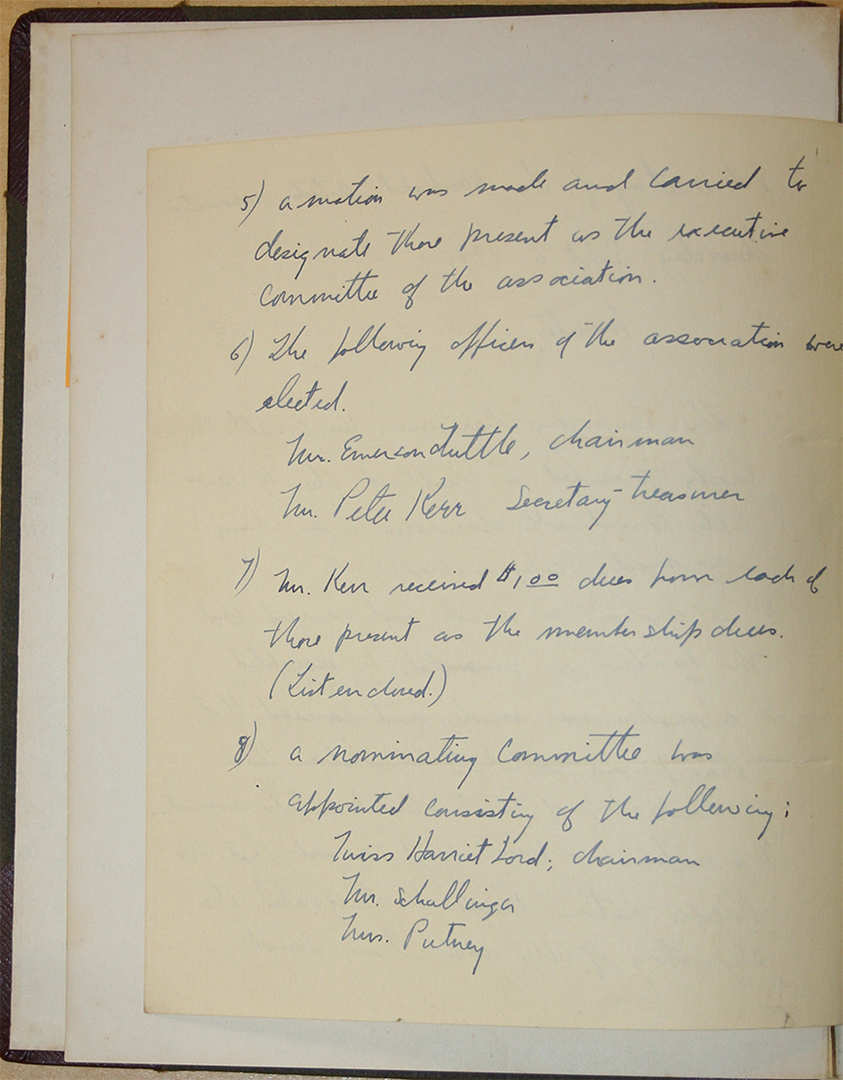 5) a motion was made and carried to
designate those present as the executive
committee of the association.
6) The following officers of the association were
elected.
Mr. Emerson Tuttle, chairman
Mr. Peter Kerr Secretary-treasurer
7) Mr. Kerr received $1.00 dues from each of
those present as the membership dues.
(List enclosed.)
8) a nominating committee was
appointed consisting of the following:
Miss Harriet Lord; chairman
Mr. Schallinger
Mrs. Putney